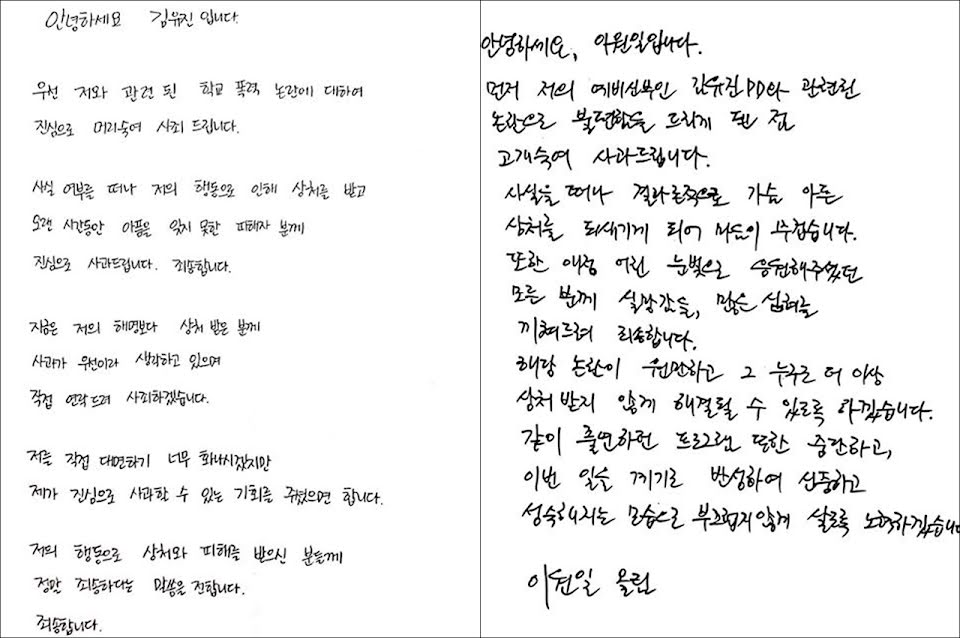 안녕하세요 김유진 입니다.
우선 저와 관련 된 학교 폭력 논란에 대하여
진심으로 머리숙여 사죄 드립니다.
사실 여부를 떠나 저의 행동으로 인해 상처를 받고
오랜 시간동안 아픔을 잊지 못한 피해자 분께
진심으로 사과드립니다. 죄송합니다.
지금은 저의 해명보다 상처 받은 분께
사과가 우선이라 생각하고 있으며
직접 연락 드려 사죄하겠습니다.
저를 직접 대면하기 너무 화나시겠지만
제가 진심으로 사과할 수 있는 기회를 주셨으면 합니다.
저의 행동으로 상처와 피해를 받으신 분들께
정말 죄송하다는 말씀을 전합니다.
죄송합니다.
안녕하세요, 이원일입니다.
먼저 저의 예비신부인 김유진PD와 관련된
논란으로 불편함을 드리게 된 점
고개숙여 사과드립니다.
사실을 떠나 결과론적으로 가슴 아픈
상처를 되새기게 되어 마음이 무겁습니다.
또한 애정 어린 눈빛으로 응원해주셨던
모든 분께 실망감들, 많은 심려를
끼쳐드려 죄송합니다.
해당 논란이 원만하고 그 누구도 더 이상
상처 받지 않게 해결될 수 있도록 하겠습니다.
같이 출연하던 프로그램 또한 중단하고,
이번 일을 계기로 반성하여 신중하고
성숙해지는 모습으로 부끄럽지않게 살도록 노력하겠습니다
이원일 올림